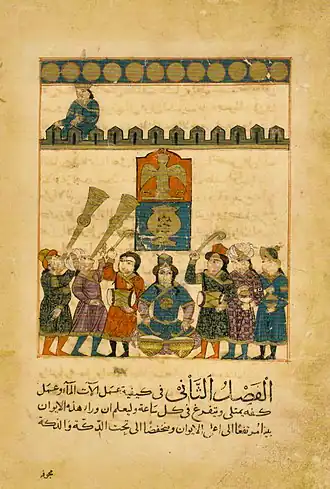 الفصل الثاني في كيفية عمل الات الماء وعمل
كفه يمتلى ويتفرغ في كل ساعة وليعلم ان وراء هذه الايوان
بيتا مرتفعا الى اعلى الايوان ومنخفضا الى تحت الدكة والدكة
مجوفة